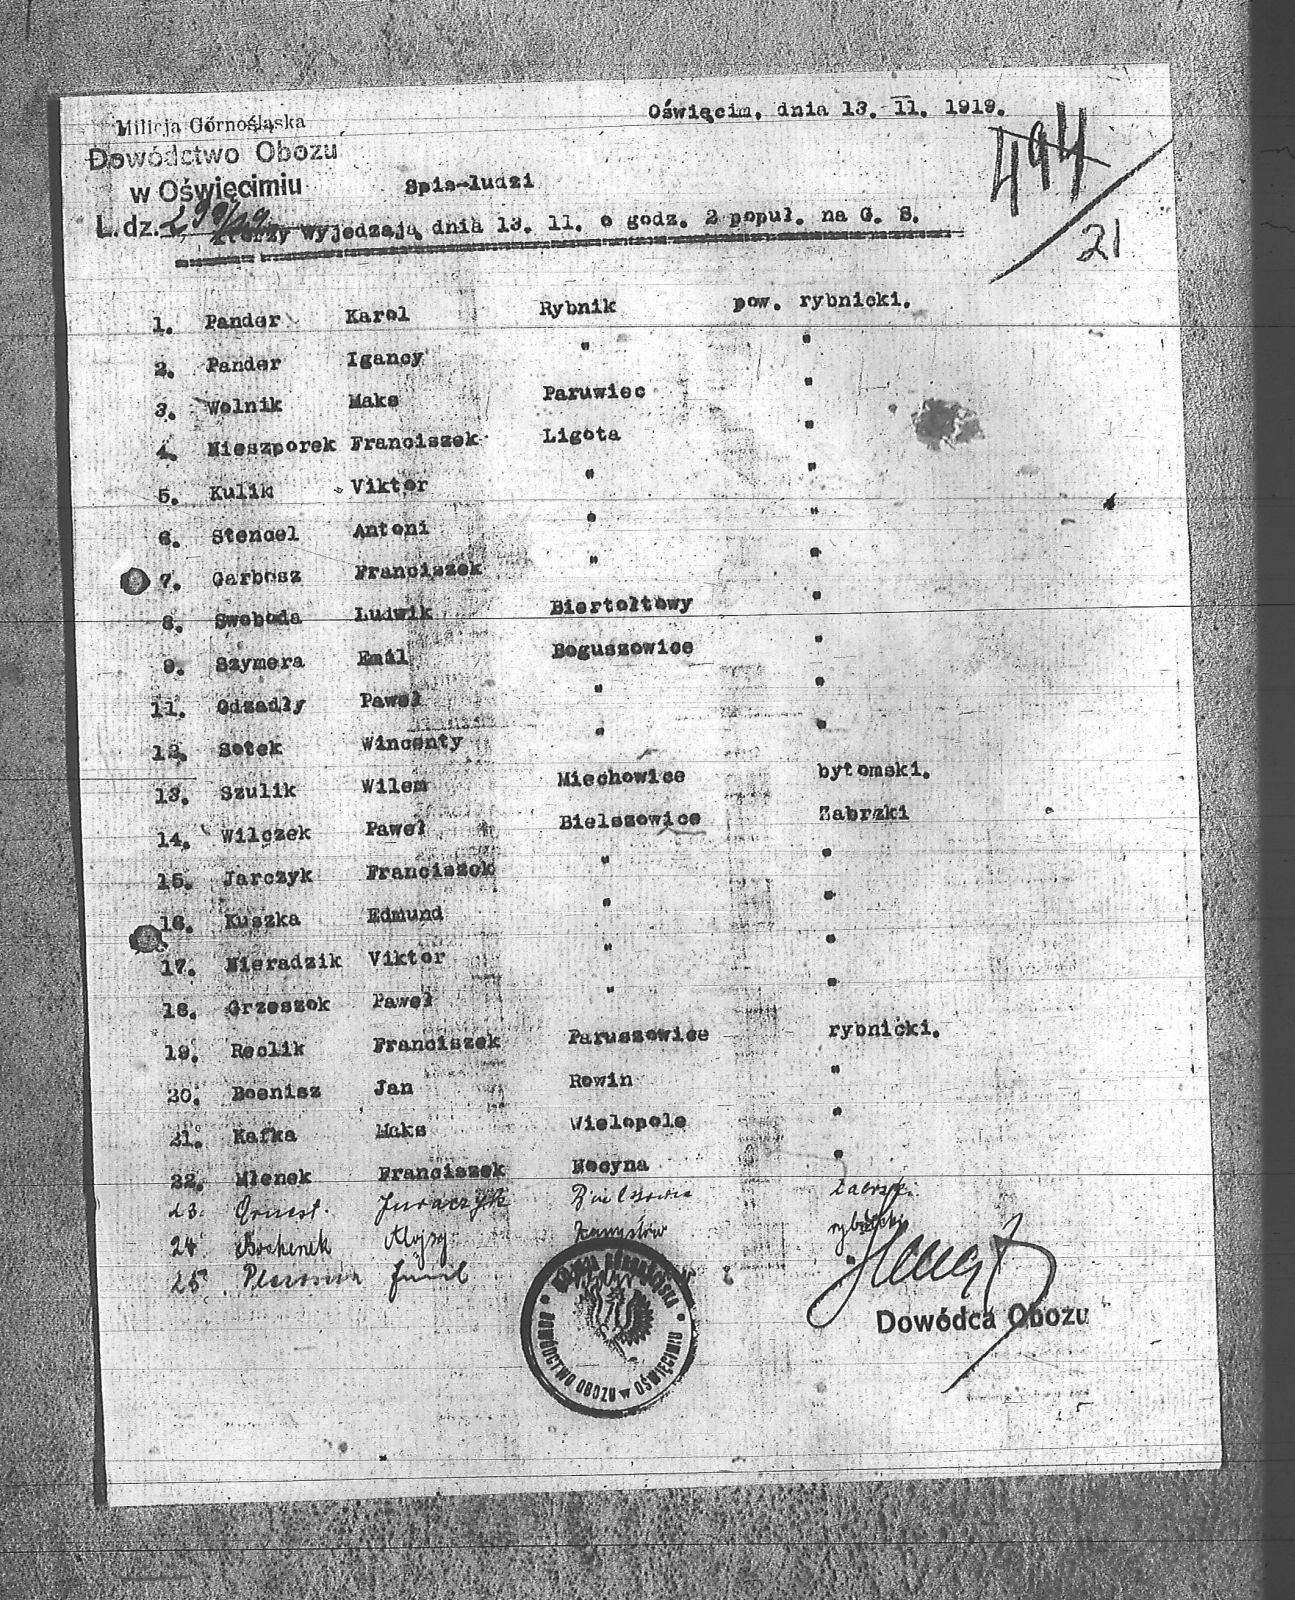 Milicja Górnośląska
Dowództwo Obozu
w Oświęcimiu
L. dz.
Oświęcim, dnia 13. 11. 1919.
494/21
Spis-ludzi
którzy wyjedzają dnia 13. 11. o godz. 2 popuł. na G. S.
1. Pander Karol Rybnik pow. rybnicki.
2. Pander Igancy " "
3. Wolnik Maks Paruwiec "
4. Nieszporek Franciszek Ligota "
5. Kulik Viktor " "
6. Stencel Antoni " "
7. Garbosz Franciszek " "
8. Swoboda Ludwik Biertołtowy "
9. Szymera Emil Boguszowice "
11. Odzadły Paweł " "
12. Sotek Wincenty " "
13. Szulik Wilem Miechowice bytomski.
14. Wilczek Paweł Bielszowice Zabrzki
15. Jarczyk Franciszek " "
16. Kuszka Edmund " "
17. Nieradzik Viktor " "
18. Grzeszok Paweł " "
19. Reclik Franciszek Paruszowice rybnicki.
20. Boenisz Jan Rowin "
21. Kafka Maks Wielopole "
22. Młenek Franciszek Nocyna "
23. Ernest Juraczyk
24. Bochenek Alojzy Zamysłów rybnicki
25. "
Dowódca Obozu
MILICJA GÓRNOŚLĄSKA
DOWÓDCTWO OBOZU W OŚWIĘCIMIU